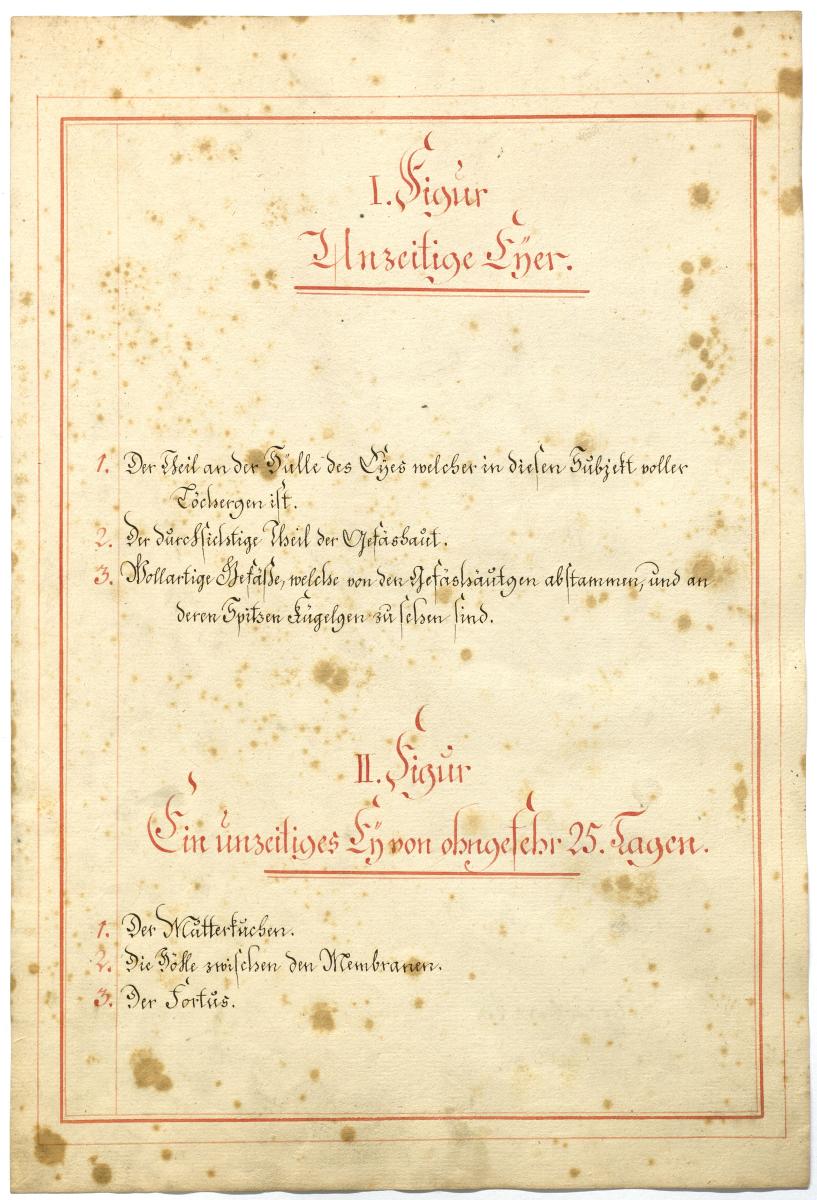 I. Figur
Unzeitige Eÿer.
1. Der Theil an der Hülle des Eÿes welcher in diesen Subjekt voller
Löchergen ist.
2. Der durchsichtige Theil der Gefäshaut.
3. Wollartige Gefäße, welche von den Gefäshäutgen abstammen, und an
deren Spitzen Kügelgen zu sehen sind.
II. Figur
Ein unzeitiges Eÿ von ohngefehr 25. Tagen.
1. Der Mutterkuchen.
2. Die Höhle zwischen den Membranen.
3. Der Foetus.